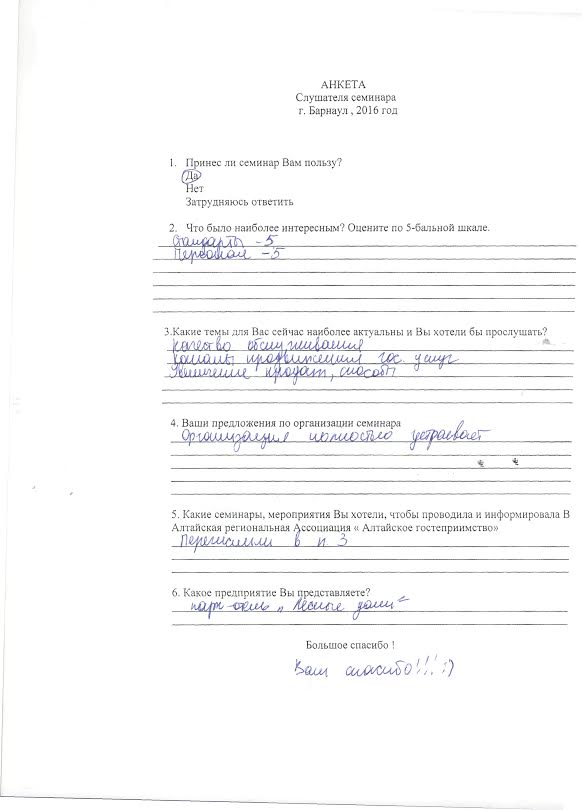 АНКЕТА
Слушателя семинара
г. Барнаул , 2016 год
1. Принес ли семинар Вам пользу?
Да
Нет
Затрудняюсь ответить
2. Что было наиболее интересным? Оцените по 5-бальной шкале.
Стандарты - 5
Персонал - 5
3.Какие темы для Вас сейчас наиболее актуальны и Вы хотели бы прослушать?
качество обслуживания
каналы продвижения гос. услуг
Увеличение продаж, способы
4. Ваши предложения по организации семинара
Организация полностью устраивает
5. Какие семинары, мероприятия Вы хотели, чтобы проводила и информировала В
Алтайская региональная Ассоциация « Алтайское гостеприимство»
Перечислили в п. 3
6. Какое предприятие Вы представляете?
парк-отель „Лесные дали“
Большое спасибо !
Вам спасибо!!! :)